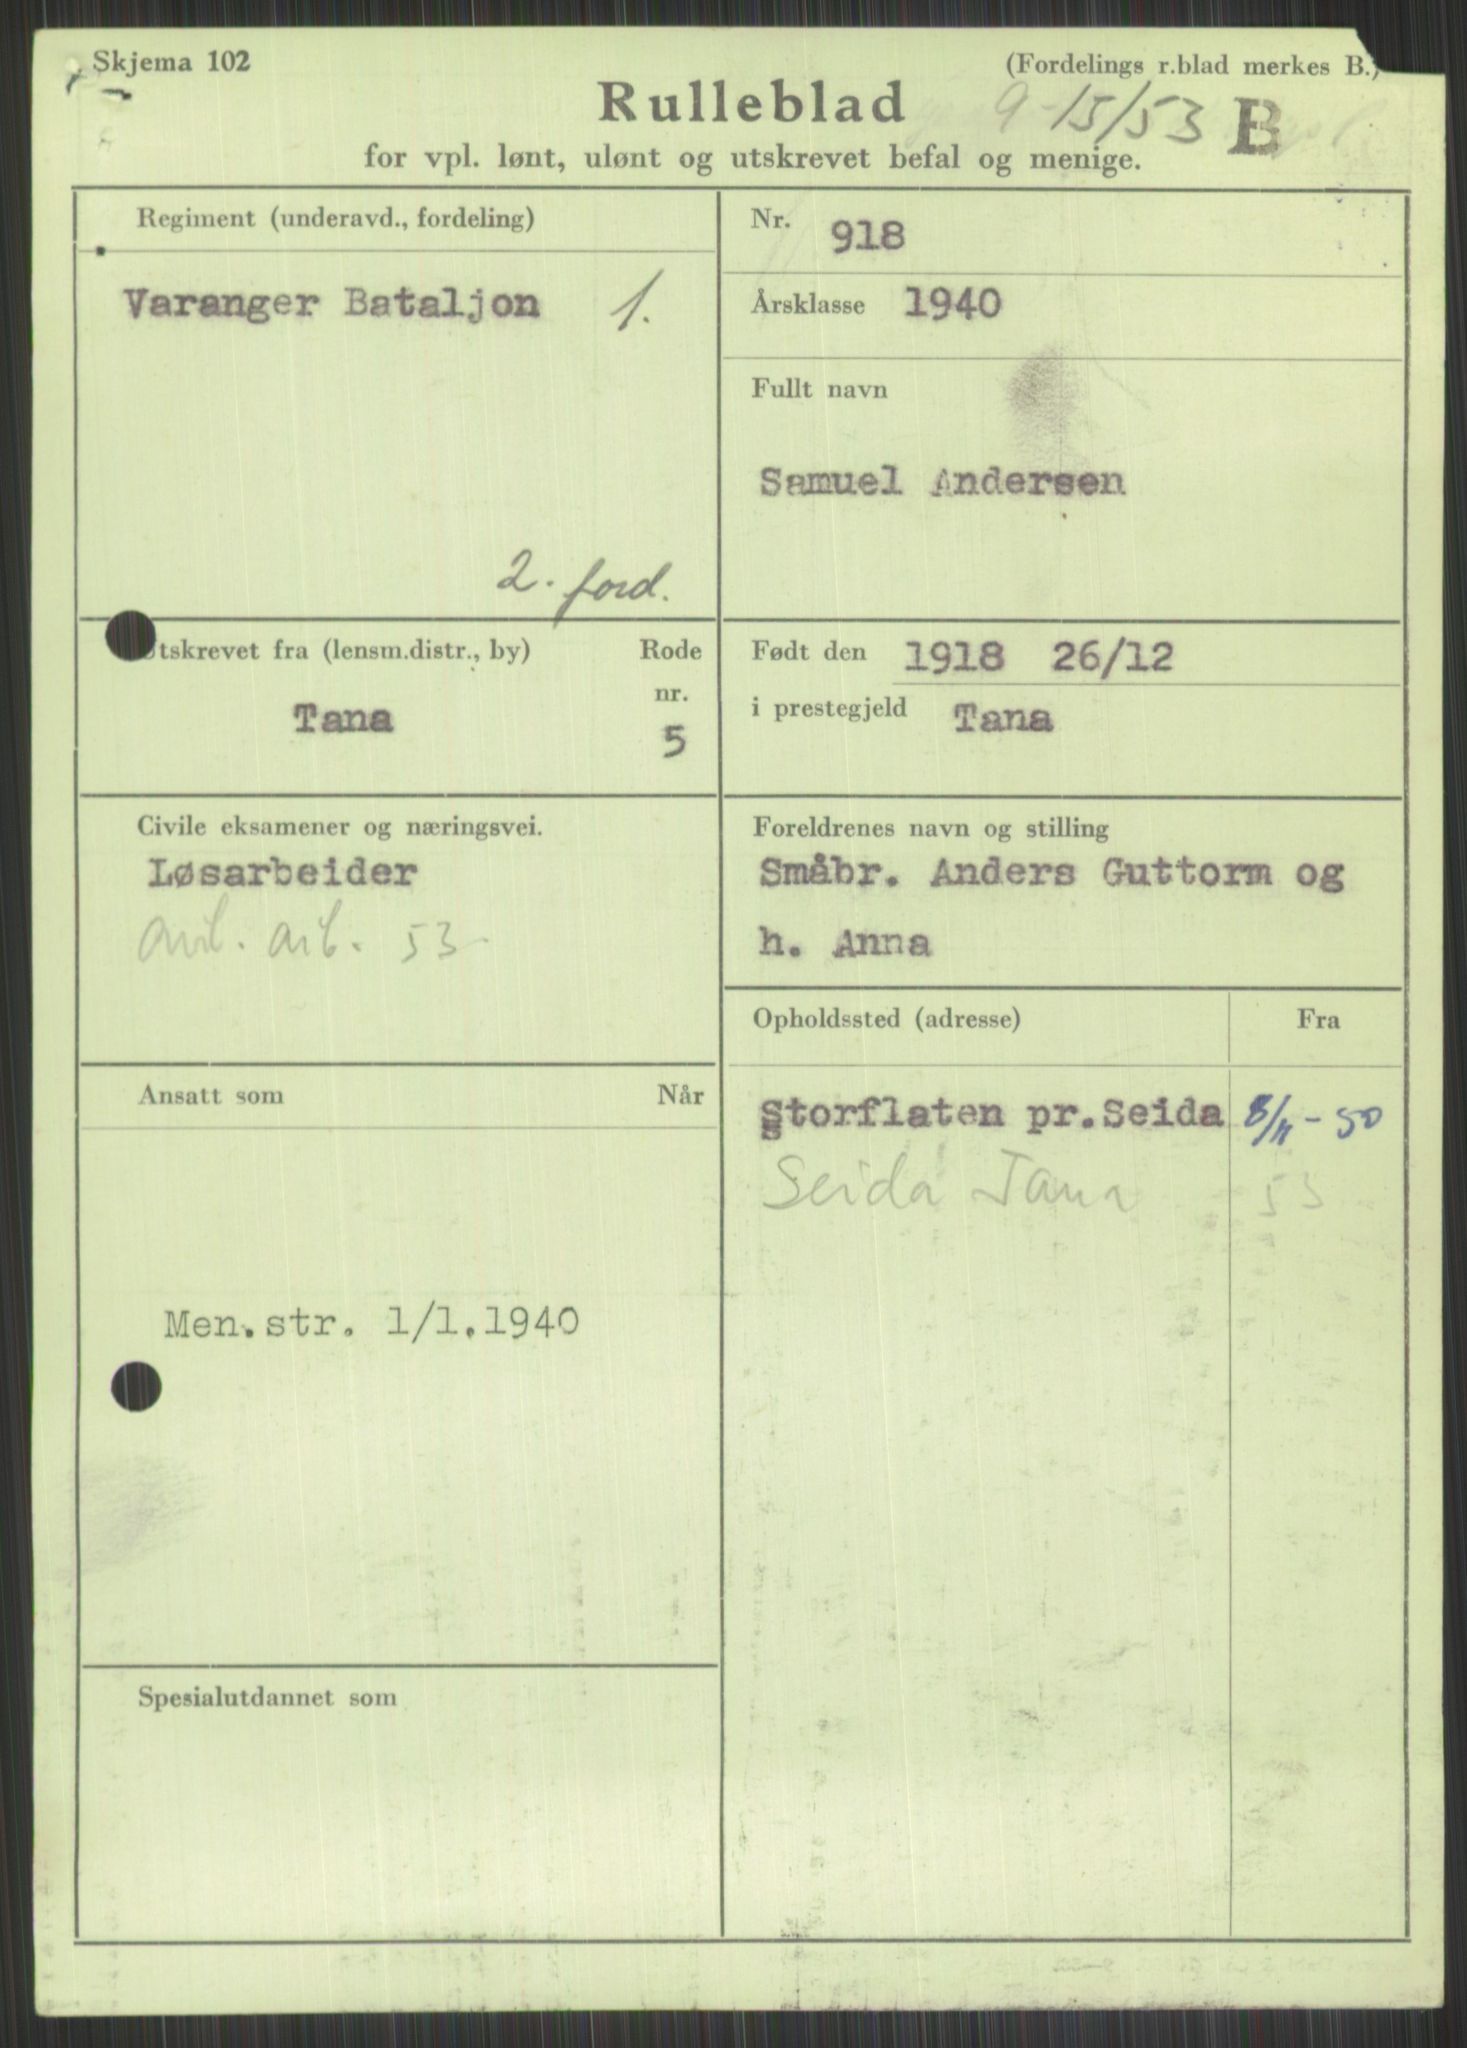 Skjema 102
(Fordelings r.blad merkes B.)
Rulleblad
9-15/53 B
for vpl. lønt, ulønt og utskrevet befal og menige.
Regiment (underavd., fordeling)
Varanger Bataljon 1.
2. ford.
Nr. 918
Årsklasse 1940
Fullt navn
Samuel Andersen
tskrevet fra (lensm.distr., by)
Rode
nr.
Tana
5
Født den 1918 26/12
i prestegjeld Tana
Civile eksamener og næringsvei.
Løsarbeider
arb. 53
Foreldrenes navn og stilling
Småbr. Anders Guttorm og
h. Anna
Opholdssted (adresse) Fra
Storflaten pr.Seida 8/11-50
Seida Tana 53
Ansatt som Når
Men.str. 1/1.1940
Spesialutdannet som